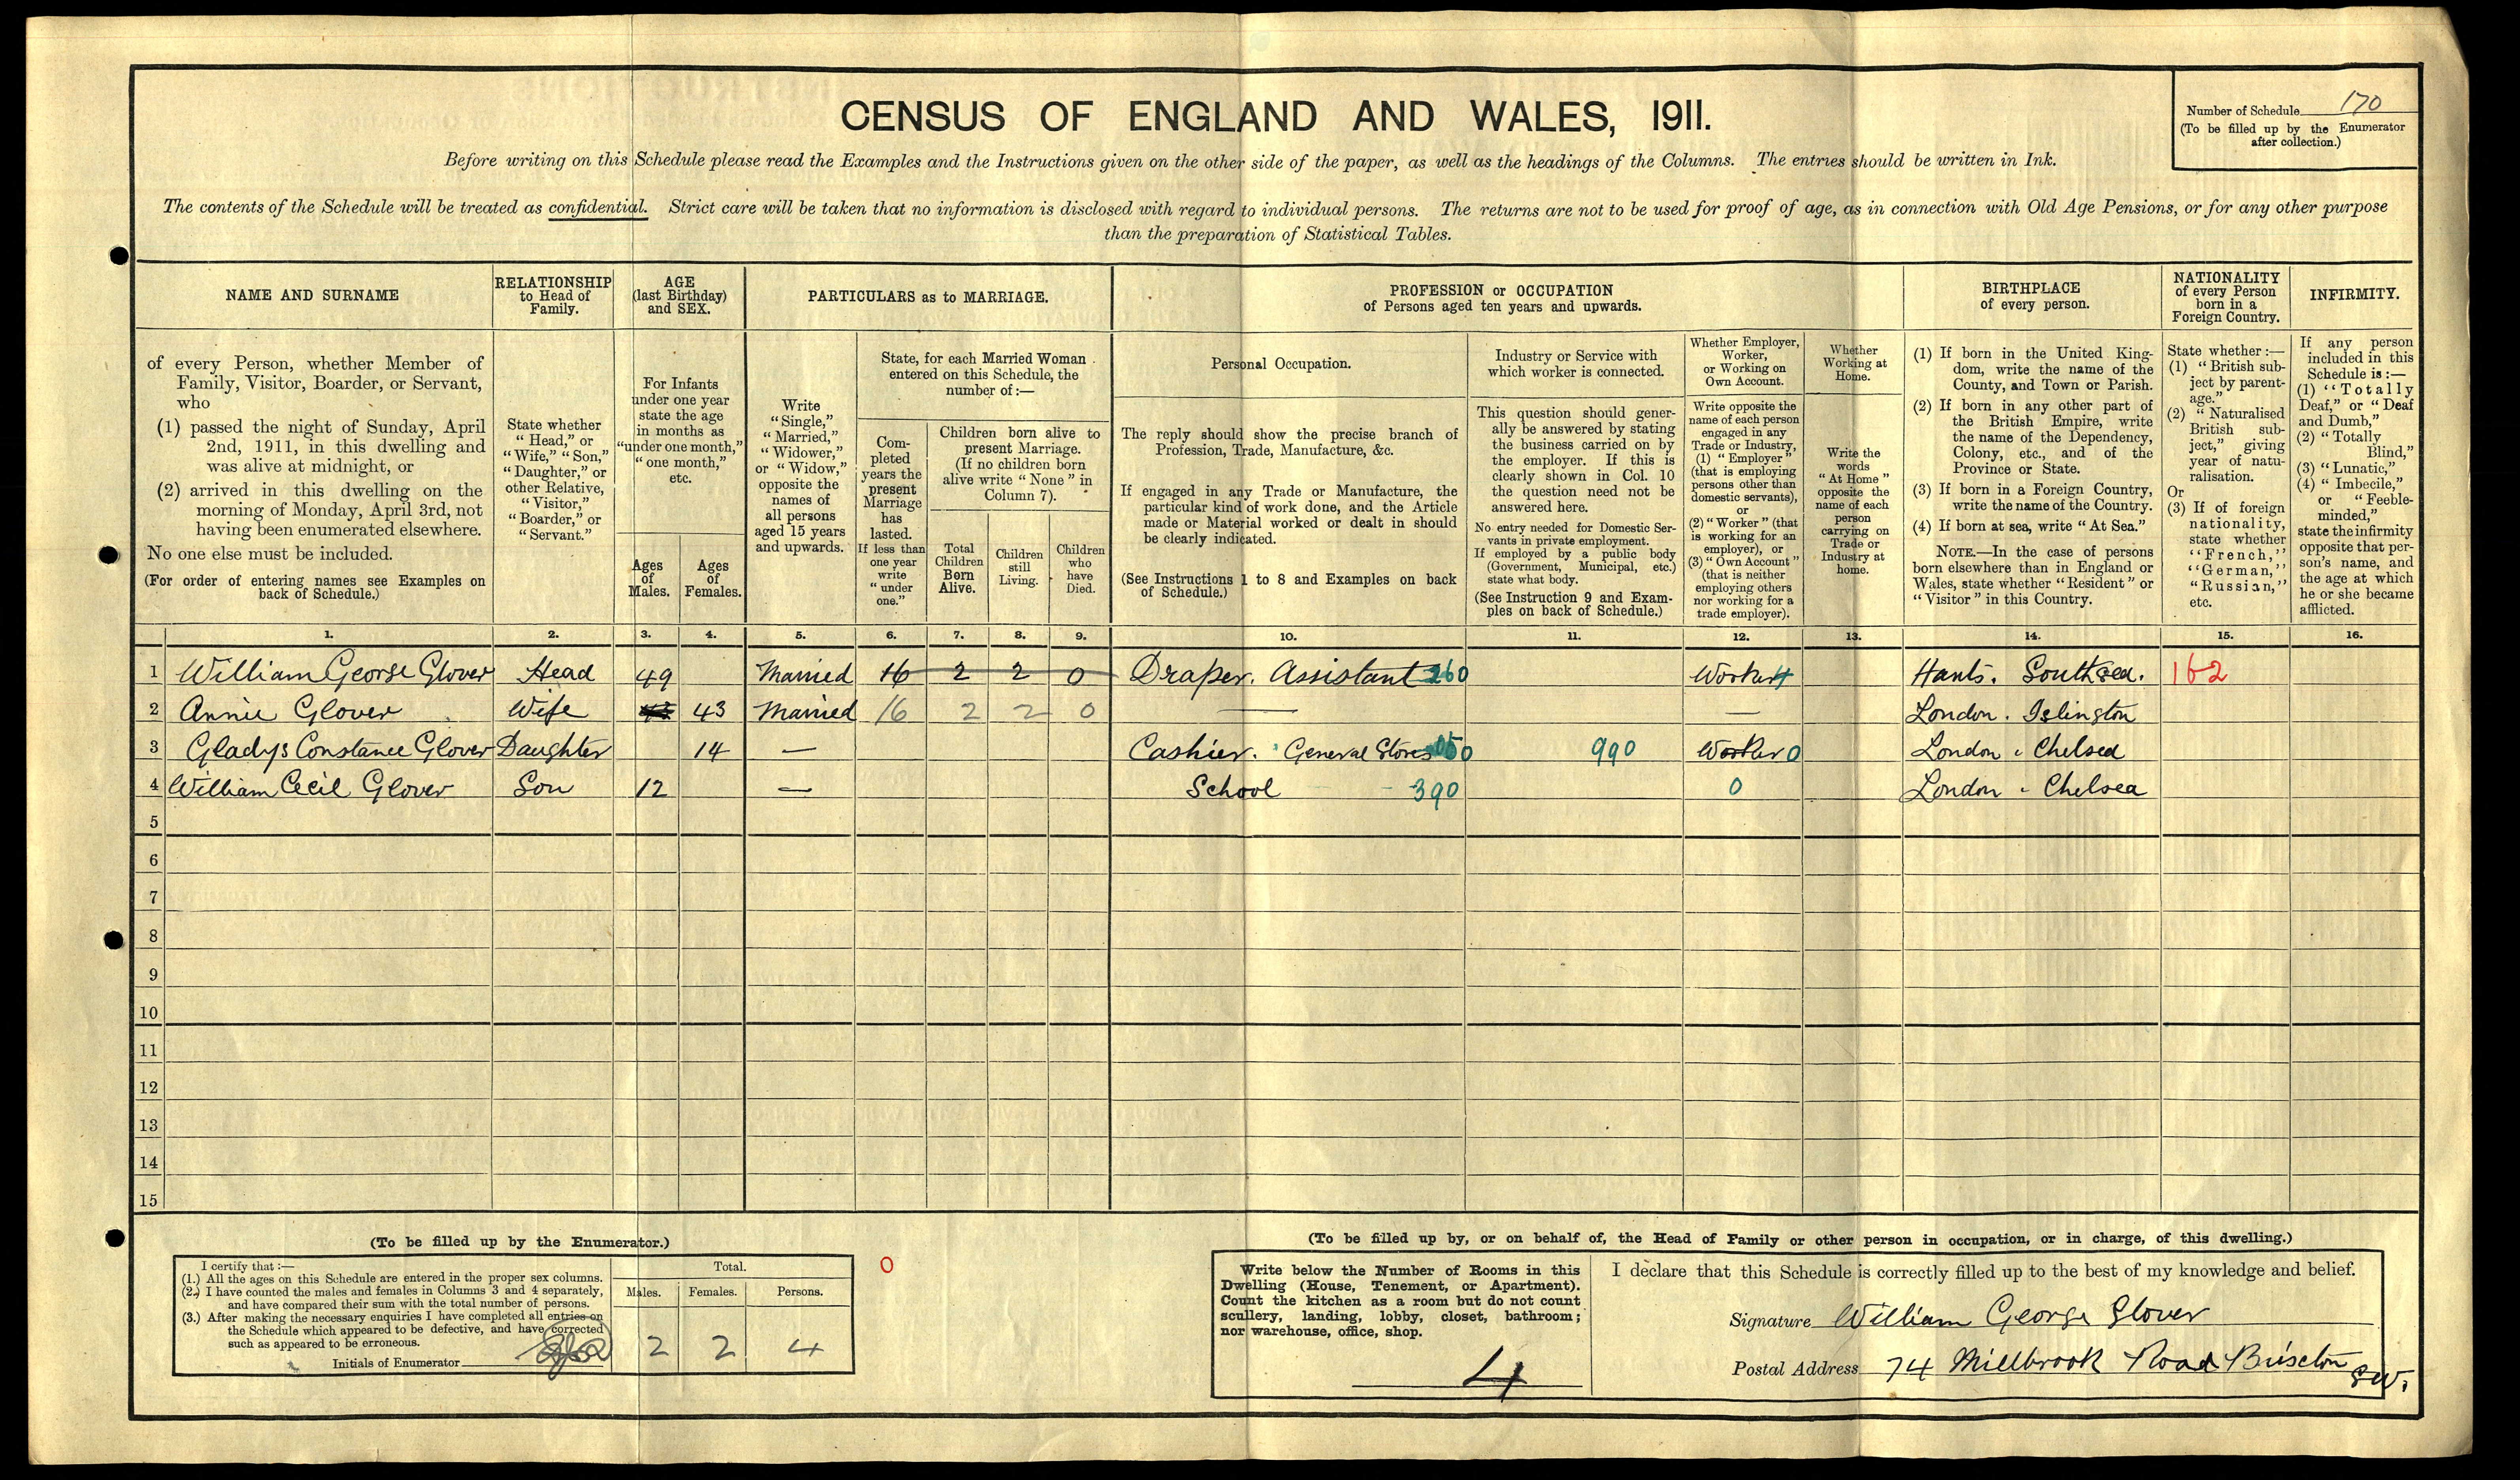 CENSUS OF ENGLAND AND WALES, 1911.
Number of Schedule 170
(To be filled up by the Enumerator
after collection.)
Before writing on this Schedule please read the Examples and the Instructions given on the other side of the paper, as well as the headings of the Columns. The entries should be written in Ink.
The contents of the Schedule will be treated as confidential. Strict care will be taken that no information is disclosed with regard to individual persons. The returns are not to be used for proof of age, as in connection with Old Age Pensions, or for any other purpose
than the preparation of Statistical Tables.
NAME AND SURNAME
of every Person, whether Member of
Family, Visitor, Boarder, or Servant,
who
(1) passed the night of Sunday, April
2nd, 1911, in this dwelling and
was alive at midnight, or
(2) arrived in this dwelling on the
morning of Monday, April 3rd, not
having been enumerated elsewhere.
No one else must be included.
(For order of entering names see Examples on
back of Schedule.)
RELATIONSHIP
to Head of
Family.
State whether
"Head," or
"Wife," "Son,"
"Daughter," or
other Relative,
"Visitor,"
"Boarder," or
"Servant."
AGE
(last Birthday)
and SEX.
For Infants
under one year
state the age
in months as
"under one month,"
"one month,"
etc.
Ages
of
Males.
Ages
of
Females.
PARTICULARS as to MARRIAGE.
Write
"Single,"
"Married,"
"Widower,"
or "Widow,"
opposite the
names of
all persons
aged 15 years
and upwards.
State, for each Married Woman
entered on this Schedule, the
number of :—
Com-
pleted
years the
present
Marriage
has
lasted.
If less than
one year
write
"under
one."
Children born alive to
present Marriage.
(If no children born
alive write "None" in
Column 7).
Total
Children
Born
Alive.
Children
still
Living.
Children
who
have
Died.
PROFESSION or OCCUPATION
of Persons aged ten years and upwards.
Personal Occupation.
The reply should show the precise branch of
Profession, Trade, Manufacture, &c.
If engaged in any Trade or Manufacture, the
particular kind of work done, and the Article
made or Material worked or dealt in should
be clearly indicated.
(See Instructions 1 to 8 and Examples on back
of Schedule.)
Industry or Service with
which worker is connected.
This question should gener-
ally be answered by stating
the business carried on by
the employer. If this is
clearly shown in Col. 10
the question need not be
answered here.
No entry needed for Domestic Ser-
vants in private employment.
If employed by a public body
(Government, Municipal, etc.)
state what body.
(See Instruction 9 and Exam-
ples on back of Schedule.)
Whether Employer,
Worker,
or Working on
Own Account.
Write opposite the
name of each person
engaged in any
Trade or Industry,
(1) "Employer"
(that is employing
persons other than
domestic servants),
or
(2) "Worker" (that
is working for an
employer), or
(3) "Own Account"
(that is neither
employing others
nor working for a
trade employer).
Whether
Working at
Home.
Write the
words
"At Home"
opposite the
name of each
person
carrying on
Trade or
Industry at
home.
BIRTHPLACE
of every person.
(1) If born in the United King-
dom, write the name of the
County, and Town or Parish.
(2) If born in any other part of
the British Empire, write
the name of the Dependency,
Colony, etc., and of the
Province or State.
(3) If born in a Foreign Country,
write the name of the Country.
(4) If born at sea, write "At Sea."
NOTE.—In the case of persons
born elsewhere than in England or
Wales, state whether "Resident" or
"Visitor" in this Country.
NATIONALITY
of every Person
born in a
Foreign Country.
State whether :—
(1) "British sub-
ject by parent-
age."
(2) "Naturalised
British sub-
ject," giving
year of natu-
ralisation.
Or
(3) If of foreign
nationality,
state whether
"French,"
"German,"
"Russian,"
etc.
INFIRMITY.
If any person
included in this
Schedule is :—
(1) "Totally
Deaf," or "Deaf
and Dumb,"
(2) "Totally
Blind,"
(3) "Lunatic,"
(4) "Imbecile,"
or "Feeble-
minded,"
state the infirmity
opposite that per-
son's name, and
the age at which
he or she became
afflicted.
1. 2. 3. 4. 5. 6. 7. 8. 9. 10. 11. 12. 13. 14. 15. 16.
1 William George Glover Head 49 Married 16 2 2 0 Draper. Assistant 260 Worker 4 Hants. Southsea. 162
2 Annie Glover Wife 43 Married 16 2 2 0 — — London. Islington
3 Gladys Constance Glover Daughter 14 — Cashier. General Stores 050 990 Worker 0 London. Chelsea
4 William Cecil Glover Son 12 — School 390 0 London. Chelsea
5
6
7
8
9
10
11
12
13
14
15
(To be filled up by the Enumerator.)
I certify that :—
(1.) All the ages on this Schedule are entered in the proper sex columns.
(2.) I have counted the males and females in Columns 3 and 4 separately,
and have compared their sum with the total number of persons.
(3.) After making the necessary enquiries I have completed all entries on
the Schedule which appeared to be defective, and have corrected
such as appeared to be erroneous.
Initials of Enumerator
Total.
Males. Females. Persons.
2 2 4
0
(To be filled up by, or on behalf of, the Head of Family or other person in occupation, or in charge, of this dwelling.)
Write below the Number of Rooms in this
Dwelling (House, Tenement, or Apartment).
Count the kitchen as a room but do not count
scullery, landing, lobby, closet, bathroom;
nor warehouse, office, shop.
4
I declare that this Schedule is correctly filled up to the best of my knowledge and belief.
Signature William George Glover
Postal Address 74 Millbrook Road Brixton
S.W.